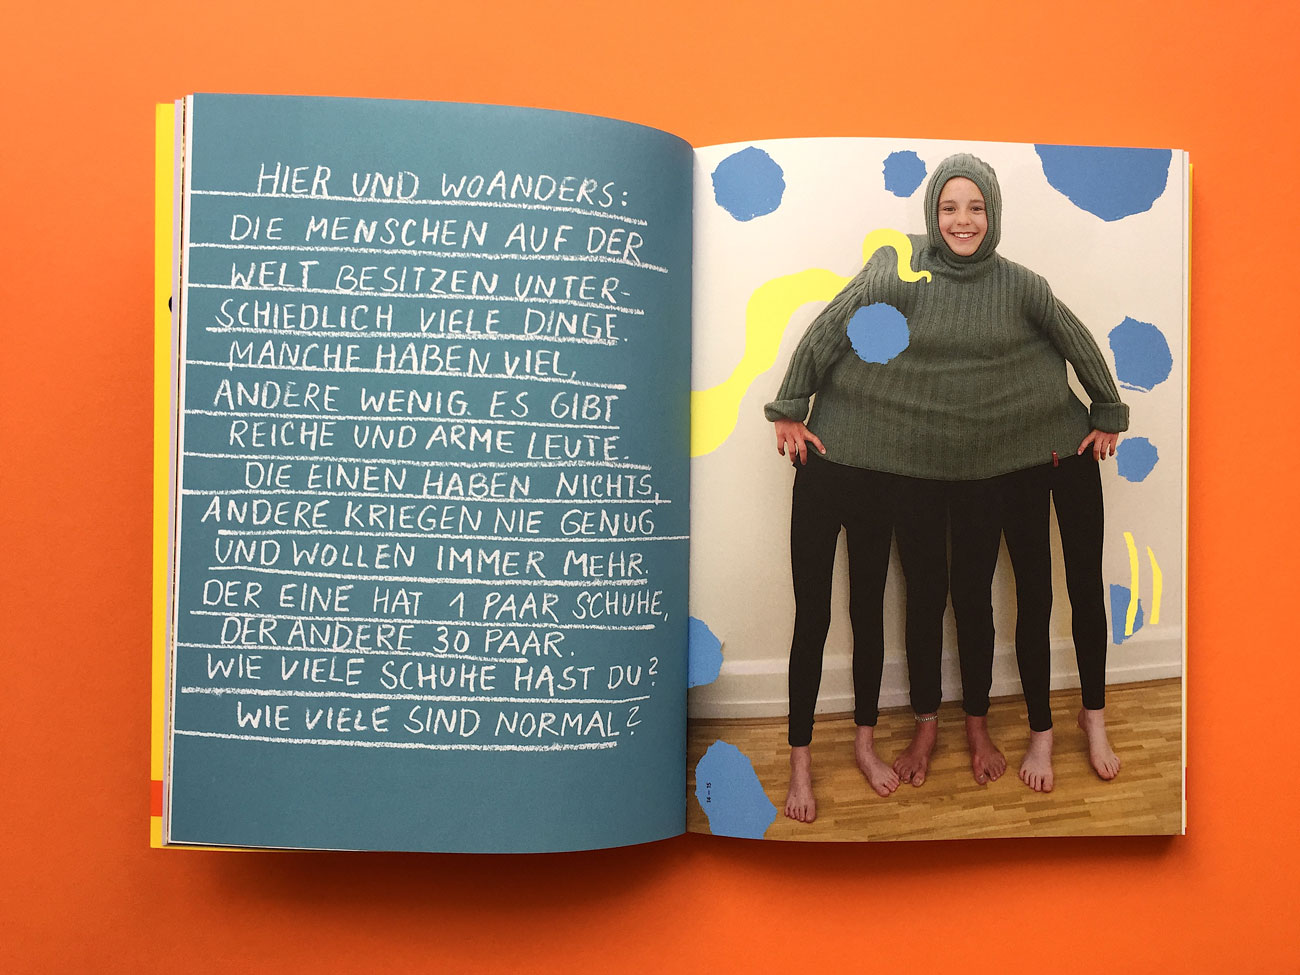 HIER UND WOANDERS:
DIE MENSCHEN AUF DER
WELT BESITZEN UNTER-
SCHIEDLICH VIELE DINGE.
MANCHE HABEN VIEL,
ANDERE WENIG. ES GIBT
REICHE UND ARME LEUTE.
DIE EINEN HABEN NICHTS,
ANDERE KRIEGEN NIE GENUG
UND WOLLEN IMMER MEHR.
DER EINE HAT 1 PAAR SCHUHE,
DER ANDERE 30 PAAR.
WIE VIELE SCHUHE HAST DU?
WIE VIELE SIND NORMAL?
14 — 15